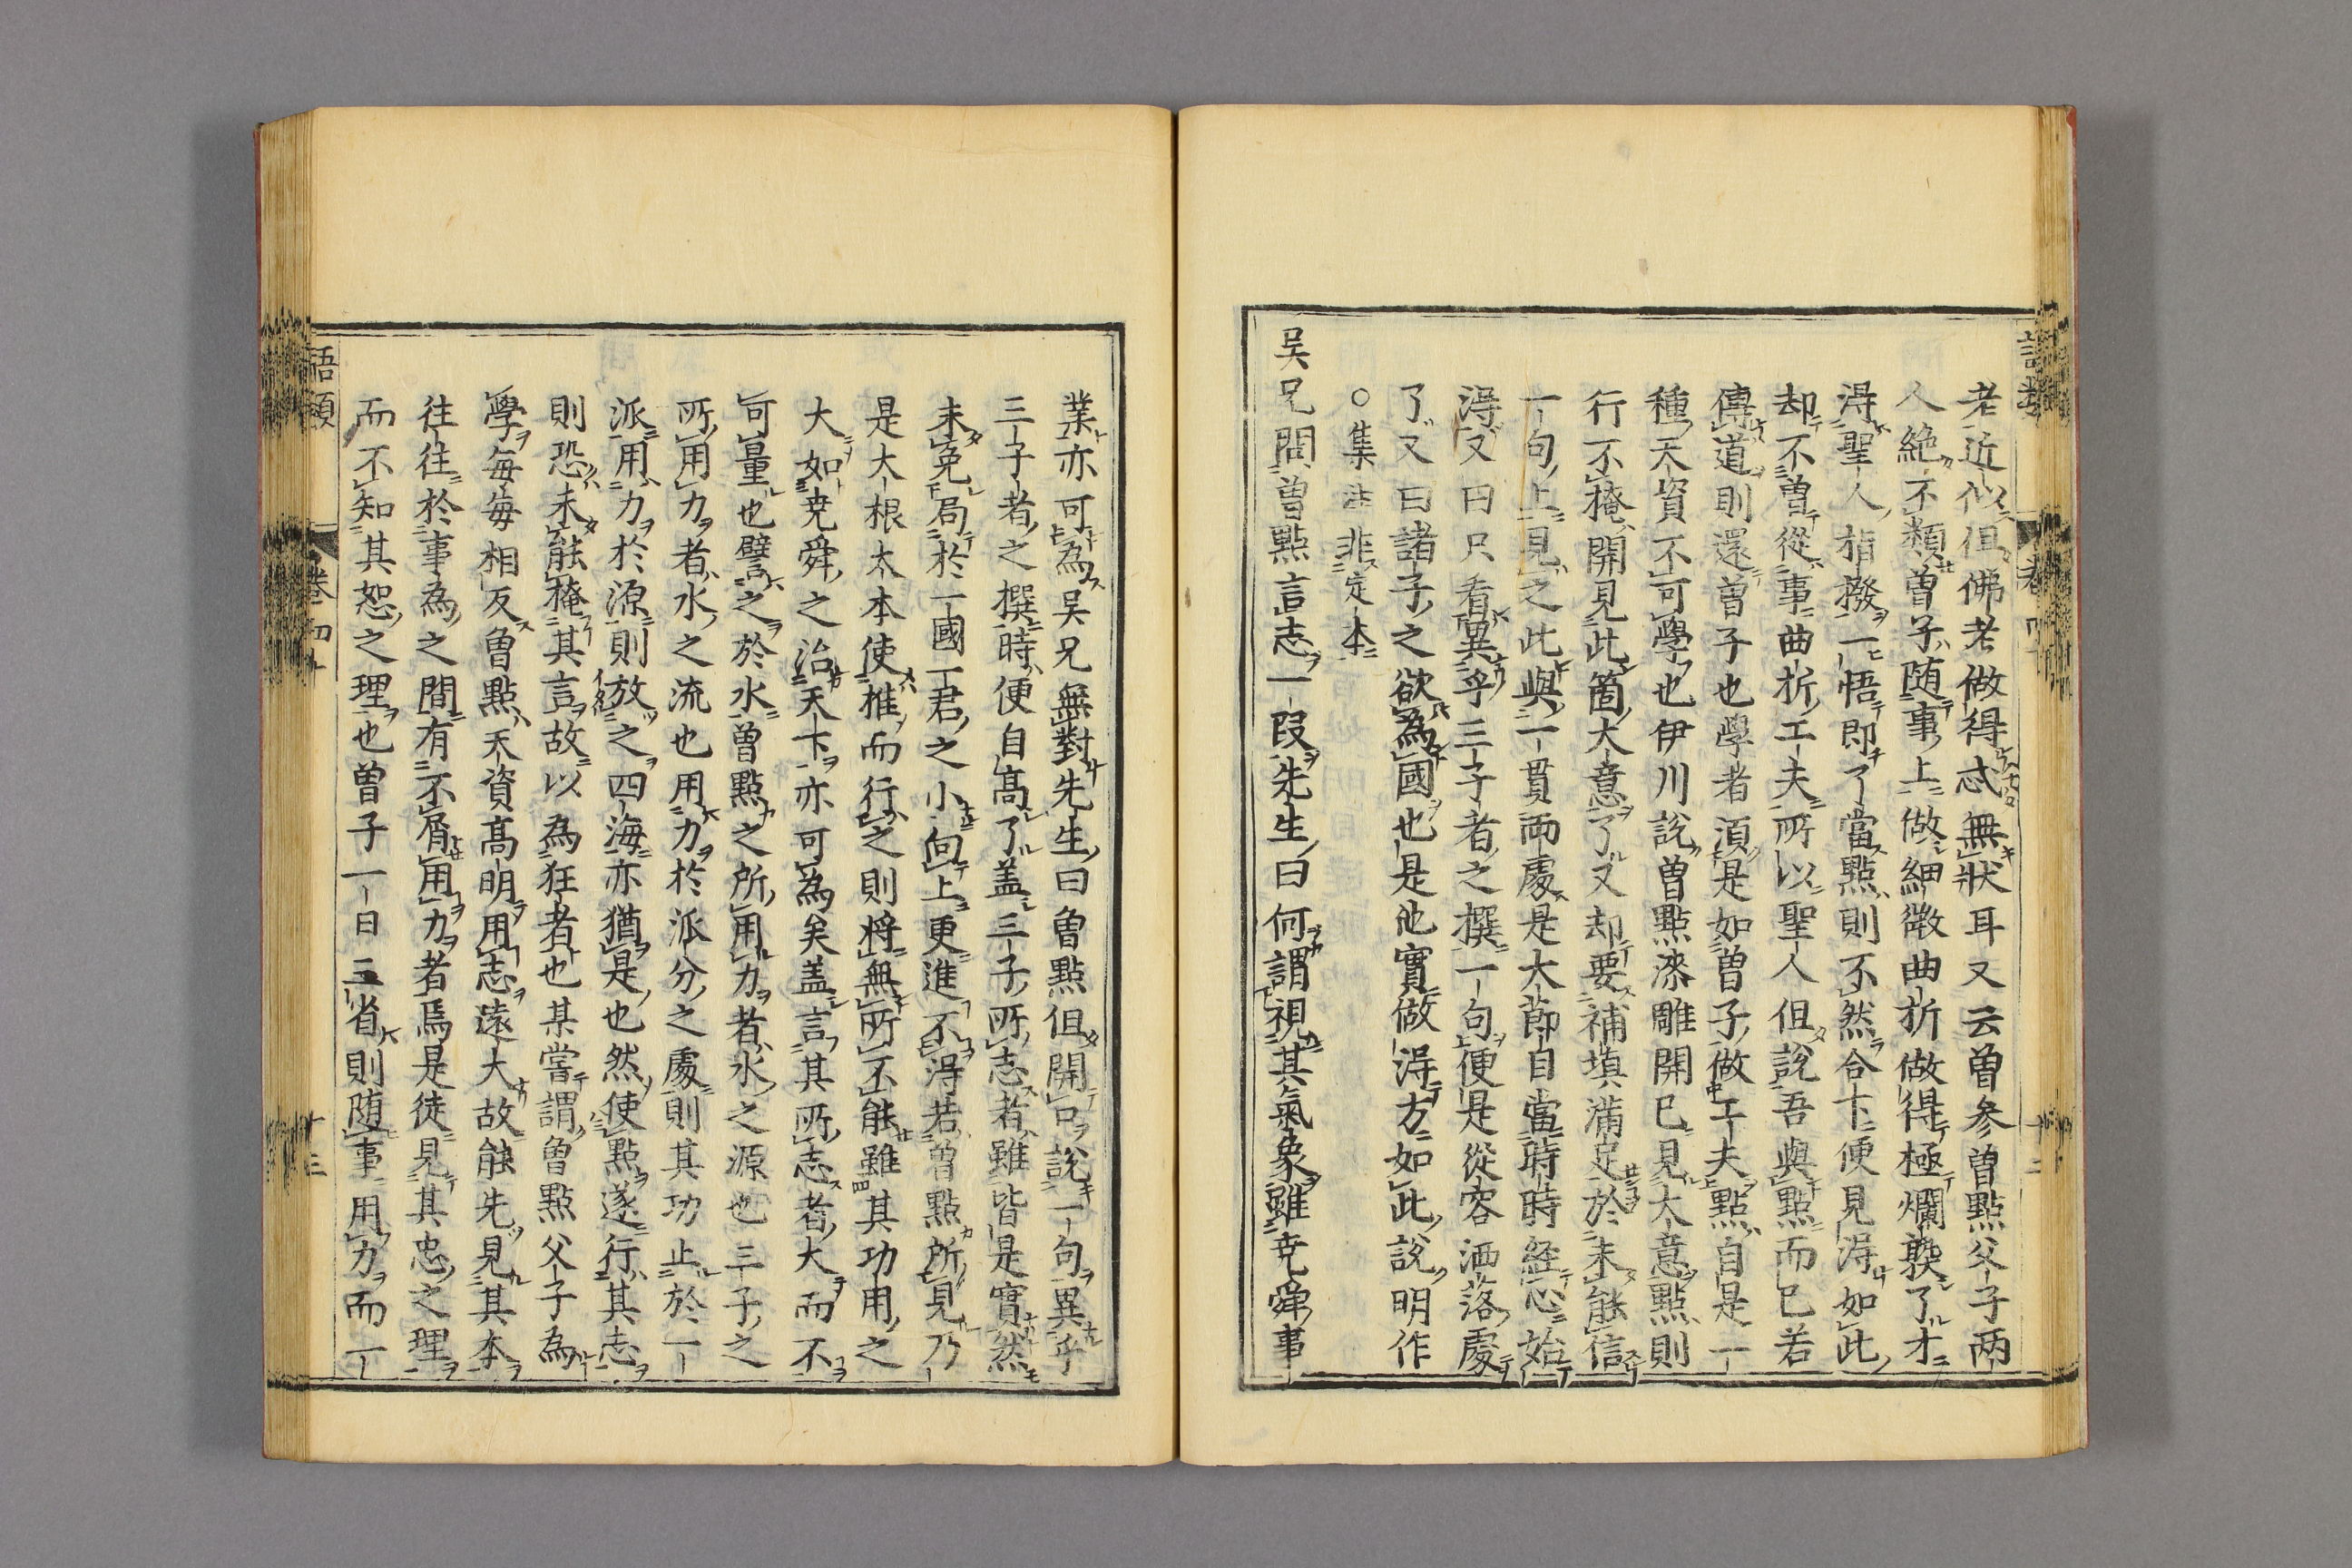 老近似但佛老做得忒無狀耳又云曾参曾點父子兩
人絶不類曾子随事上做細微曲折做得極爛熟了才
得聖人指撥一悟即了當點則不然合下便見得如此
却不曾從事曲折工夫所以聖人但說吾與點而已若
傳道則還曾子也學者須是如曾子做工夫點自是一
種天資不可學也伊川說曾點漆雕開已見大意點則
行不掩開見此箇大意了又却要補填滿足於未能信
一句上見之此與一貫兩處是大節目當時時経心始
得又曰只看異乎三子者之撰一句便是從容洒落處
了又曰諸子之欲為國也是他實做得方如此說明作
○集註非定本
吳兄問曾點言志一段先生曰何謂視其氣象雖尭舜事
業亦可為吳兄無對先生曰曾點但開口說一句異乎
三子者之撰時便自高了盖三子所志者雖皆是實然
未免局於一國一君之小向上更進不得若曾點所見乃
是大根大本使推而行之則将無所不能雖其功用之
大如尭舜之治天下亦可為矣盖言其所志者大而不
可量也譬之於水曾點之所用力者水之源也三子之
所用力者水之流也用力於派分之處則其功止於一
派用力於源則放之四海亦猶是也然使點遂行其志
則恐未能掩其言故以為狂者也某嘗謂曾點父子為
學每每相反曾點天資高明用志遠大故能先見其本
往往於事為之間有不屑用力者焉是徒見其忠之理
而不知其恕之理也曾子一日三省則随事用力而一
語類
卷四十
十三